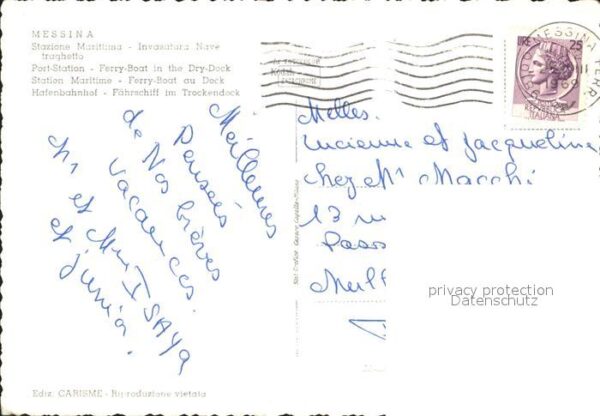 MESSINA
Stazione Marittima - Invasatura Nave
traghetto
Port-Station - Ferry-Boat in the Dry-Dock
Station Maritime - Ferry-Boat au Dock
Hafenbahnhof - Fährschiff im Trockendock
Meilleures
Pensées
de Nos brèves
vacances.
Mr et Mme ISAYA
et junior.
MESSINA FERR
1969
LIRE 25
ITALIANA
Melles.
Lucienne et Jacqueline
chez Mr Macchi
13 ru
Pass
Mulh
privacy protection
Datenschutz
Ediz. CARISME - Riproduzione vietata